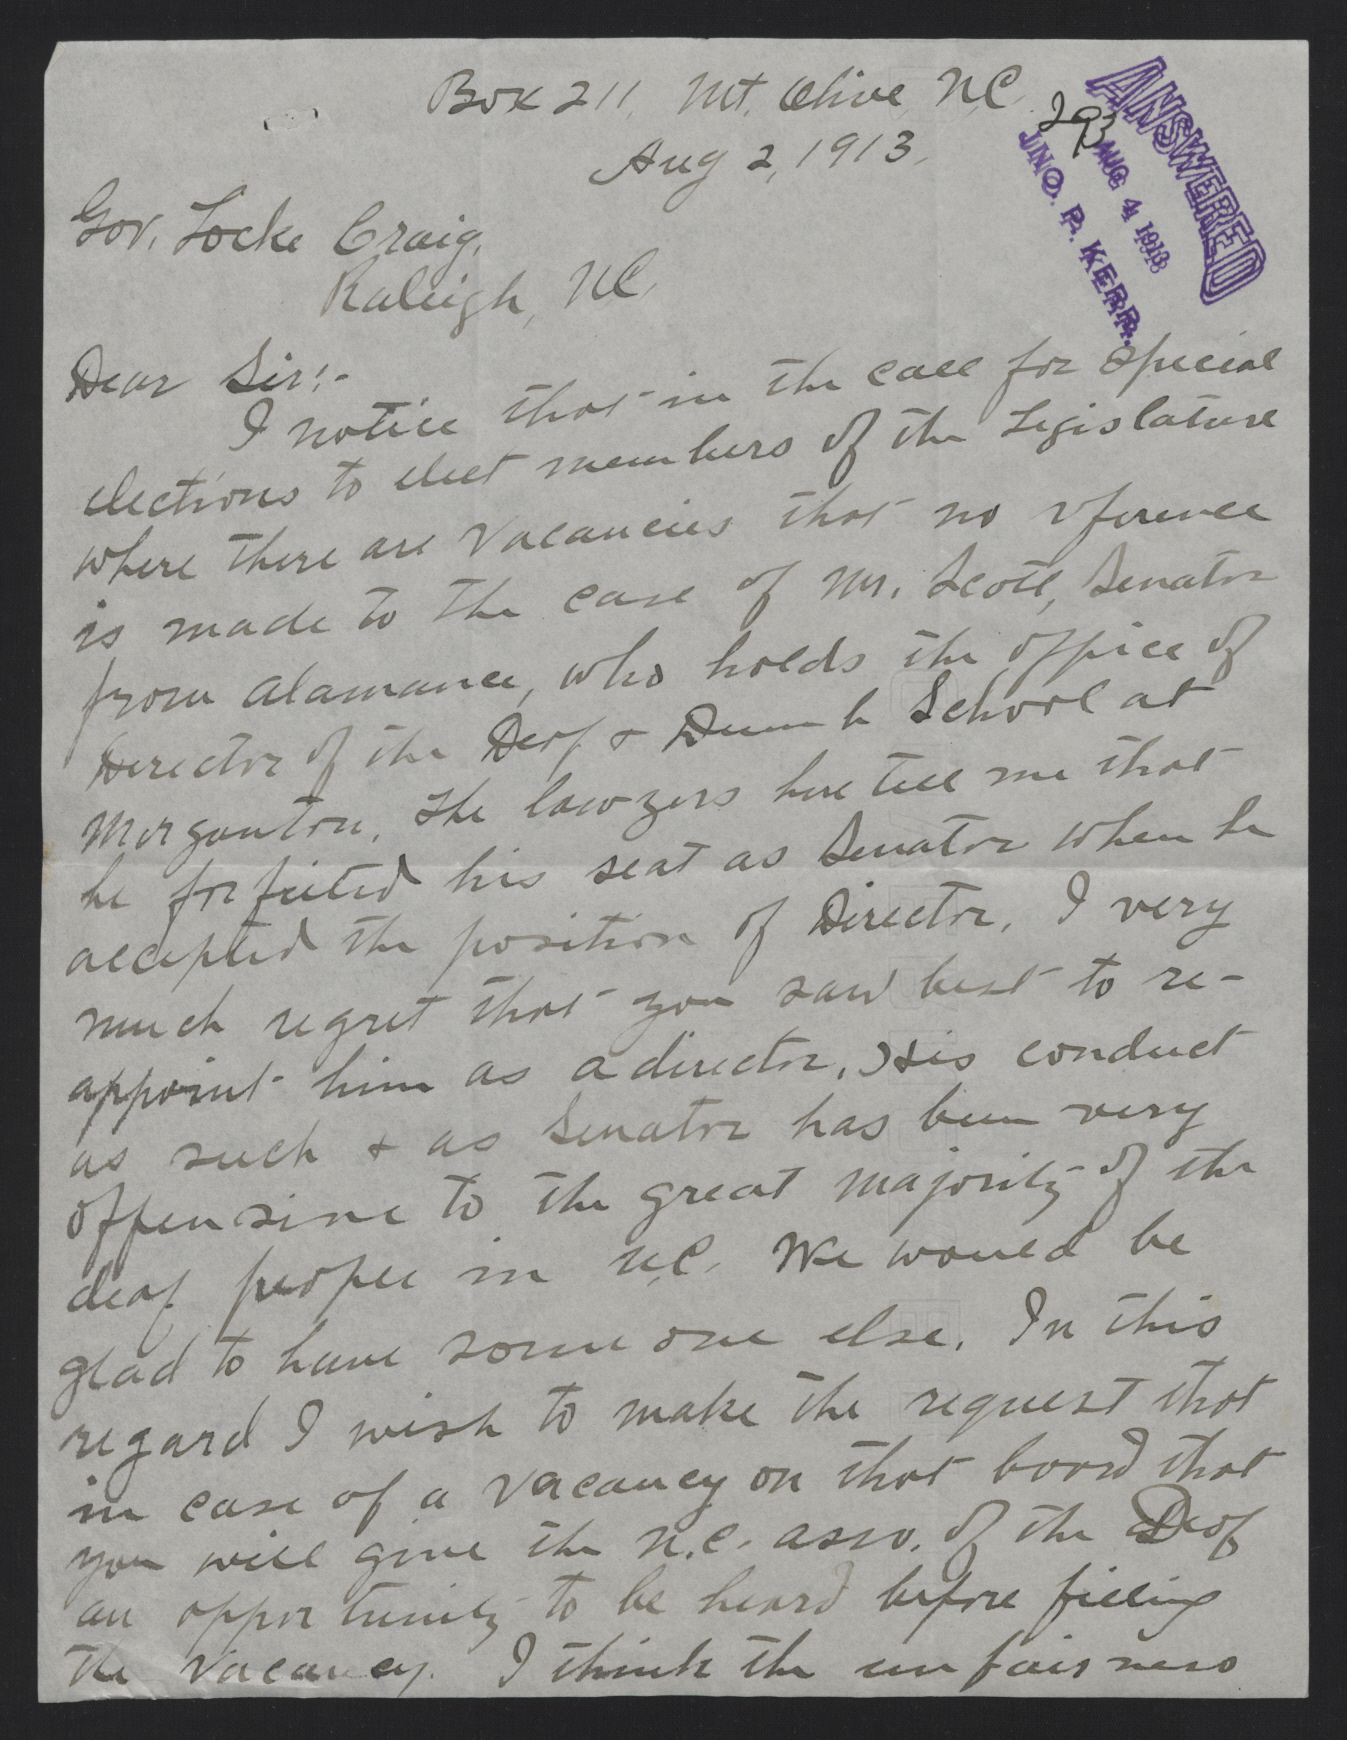 Box 211, Mt. Olive, N.C.
Aug 2, 1913.
293
ANSWERED
AUG 4 1913
JNO. P. KERR.
Gov. Locke Craig,
Raleigh, N.C.
Dear Sir:-
I notice that in the call for special
elections to elect members of the Legislature
where there are vacancies that no reference
is made to the case of Mr. Scott, Senator
from Alamance, who holds the office of
Director of the Deaf & Dumb School at
Morganton. The lawyers here tell me that
he forfeited his seat as Senator when he
accepted the position of Director. I very
much regret that you saw best to re-
appoint him as a director. His conduct
as such & as Senator has been very
offensive to the great majority of the
deaf people in N.C. We would be
glad to have some one else. In this
regard I wish to make the request that
in case of a vacancy on that board that
you will give the N.C. Asso. of the Deaf
an opportunity to be heard before filling
the vacancy. I think the unfairness